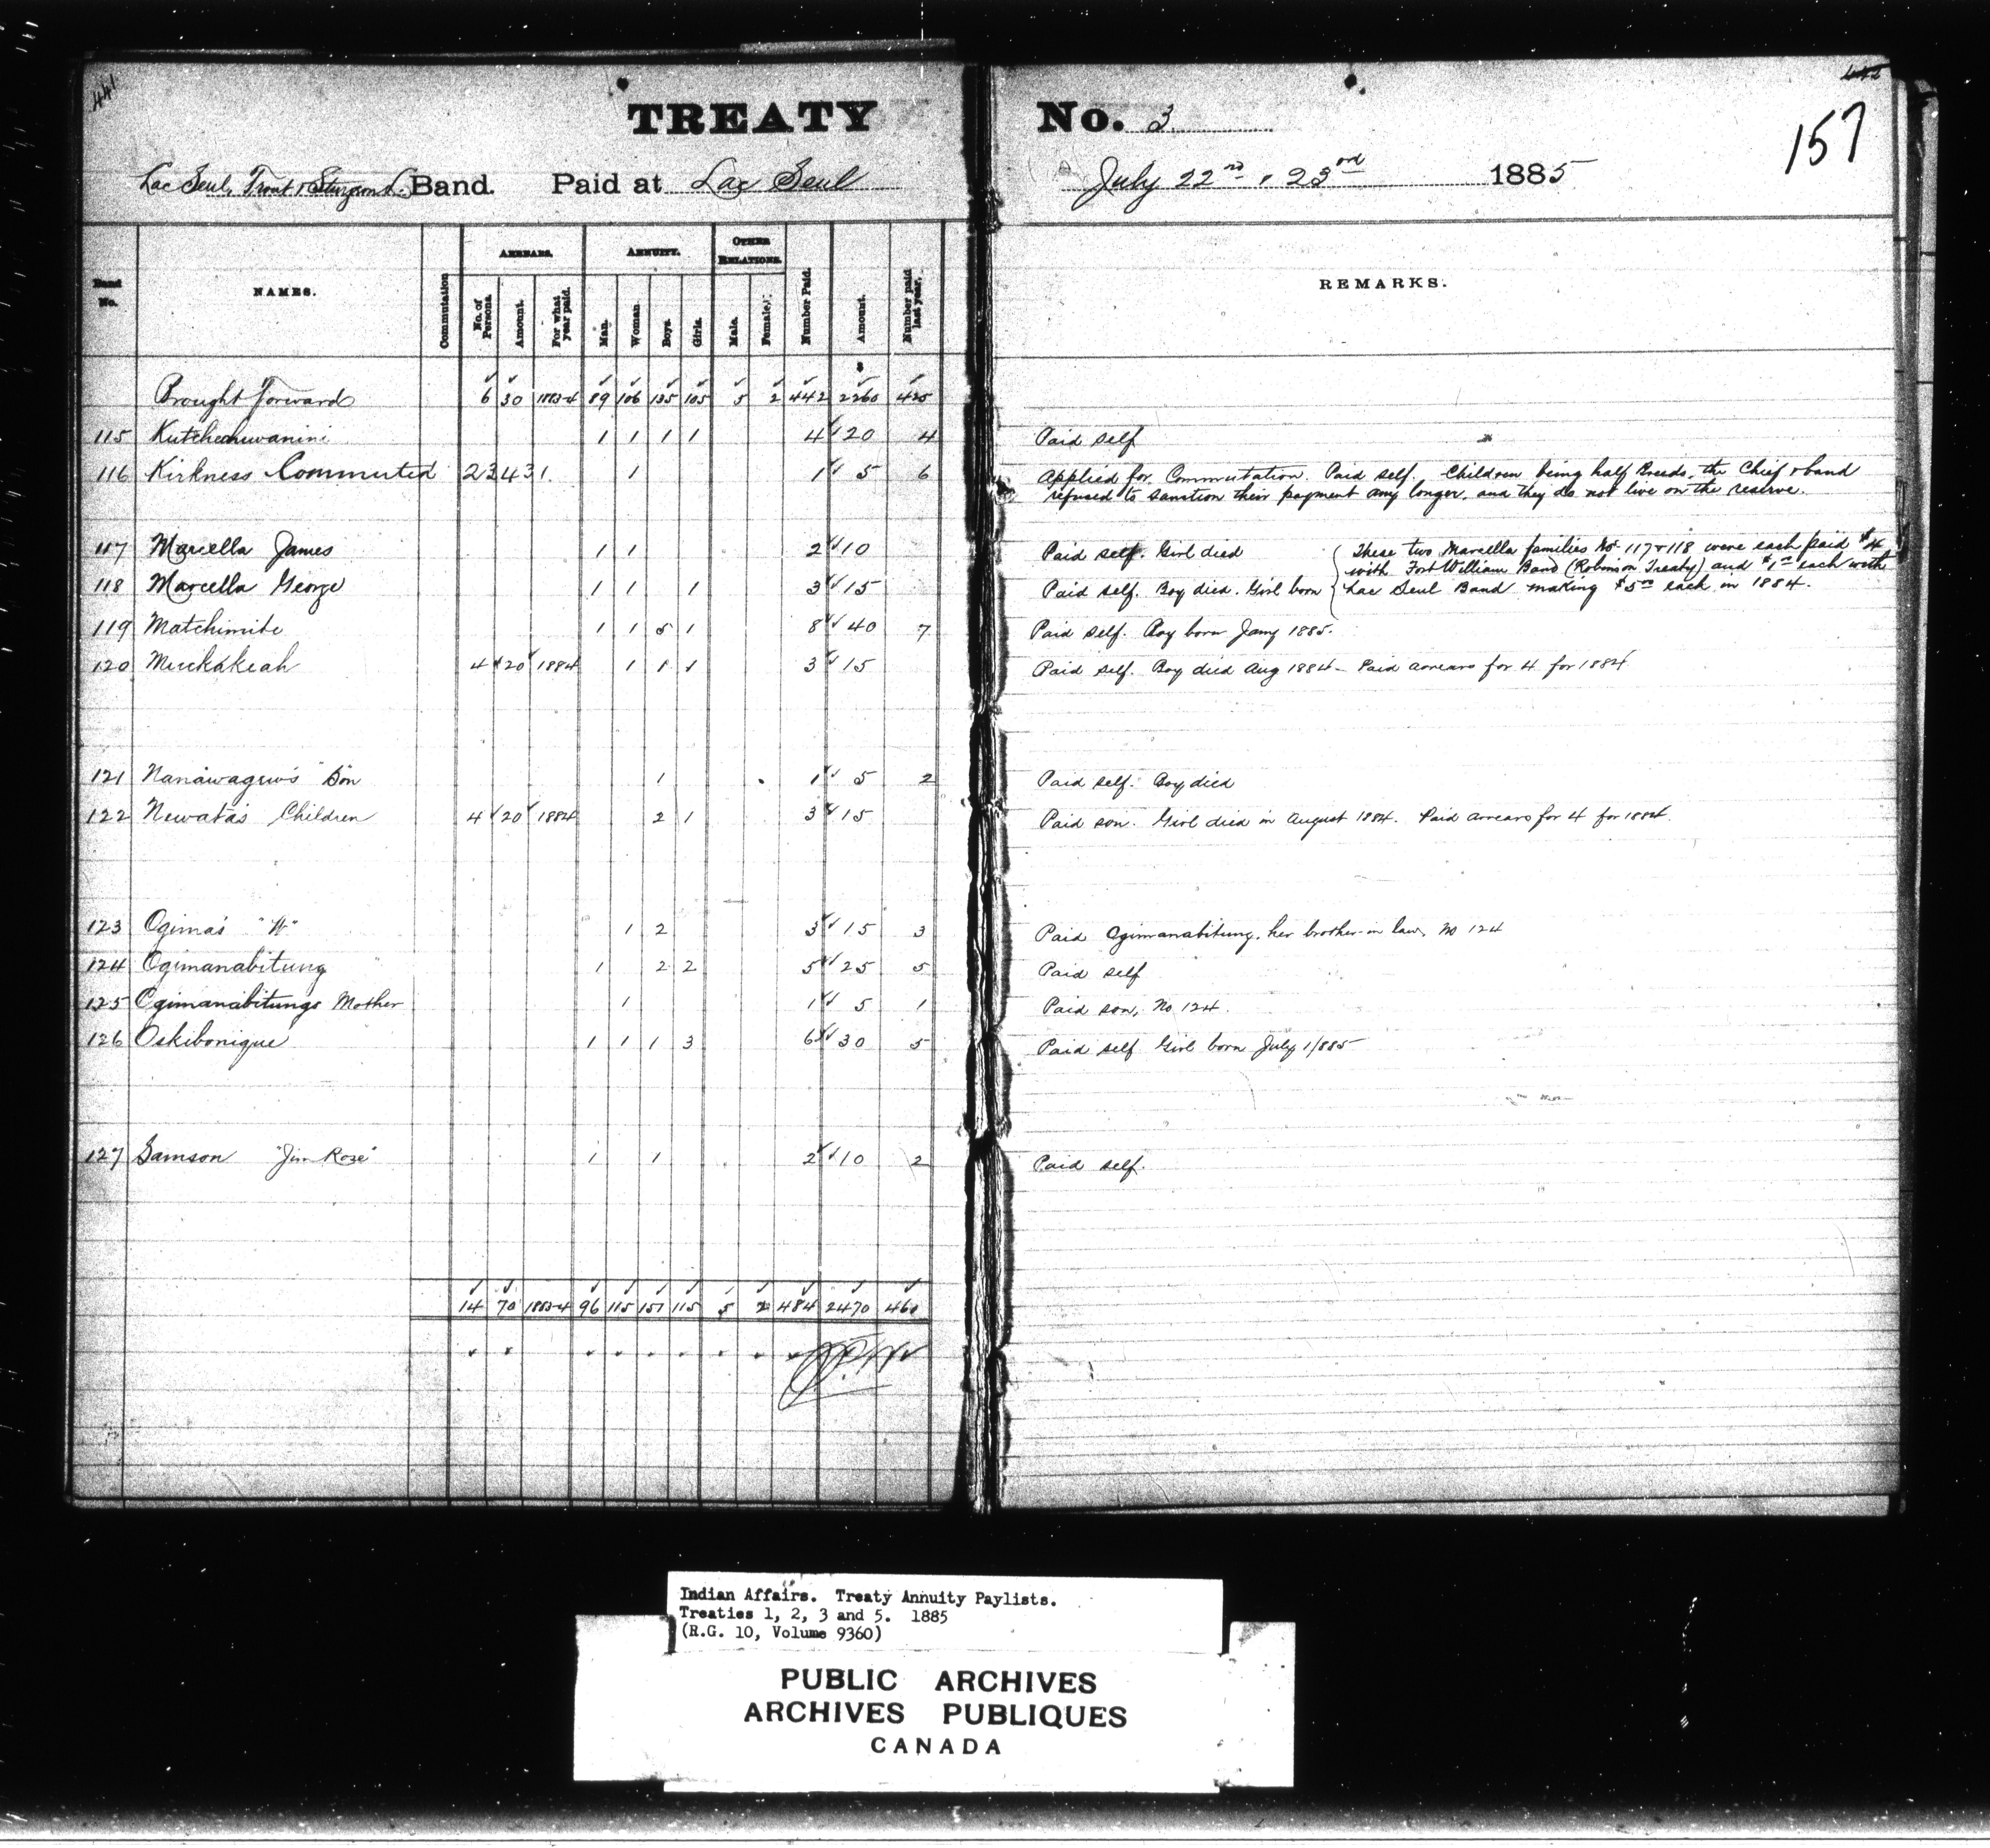 441
TREATY No. 3
442
157
Lac Seul, Trout & Sturgeon L. Band. Paid at Lac Seul July 22nd & 23rd 1885
Band No. NAMES. Commutation ARREARS. ANNUITY. OTHER RELATIONS. Number Paid. Amount. Number paid last year. REMARKS.
No. of Persons. Amount. For what year paid. Man. Woman Boys. Girls. Male. Female.
$
Brought Forward 6 30 1883-4 89 106 135 105 5 2 442 2260 425
115 Kutcheahwanini 1 1 1 1 4 20 4 Paid self
116 Kirkness Commuted 23431. 1 1 5 6 Applied for Commutation. Paid self. Children being half Breeds, the Chief & band
refused to sanction their payment any longer, and they do not live on the reserve.
117 Marcella James 1 1 2 10 Paid self. Girl died { These two Marcella families No 117 & 118 were each paid $4
with Fort William Band (Robinson Treaty) and $1 each with
118 Marcella George 1 1 1 3 15 Paid self. Boy died. Girl born { Lac Seul Band making $5 each in 1884.
119 Matchimite 1 1 5 1 8 40 7 Paid self. Boy born Jany 1885.
120 Muckakeah 4 20 1884 1 1 1 3 15 Paid self. Boy died Aug 1884 – Paid arrears for 4 for 1884
121 Nanawaguw's "Son 1 1 5 2 Paid self. Boy died
122 Newata's Children 4 20 1884 2 1 3 15 Paid son. Girl died in August 1884. Paid arrears for 4 for 1884.
123 Ogima's "W" 1 2 3 15 3 Paid Ogimanabitung, her brother-in law, No 124
124 Ogimanabitung 1 2 2 5 25 5 Paid self
125 Ogimanabitungs Mother 1 1 5 1 Paid son, No 124.
126 Oskibonique 1 1 1 3 6 30 5 Paid self Girl born July 1/885
127 Samson "Jim Roze" 1 1 2 10 2 Paid self.
14 70 1883-4 96 115 151 115 5 2 484 2470 460
Indian Affairs. Treaty Annuity Paylists.
Treaties 1, 2, 3 and 5. 1885
(R.G. 10, Volume 9360)
PUBLIC ARCHIVES
ARCHIVES PUBLIQUES
CANADA